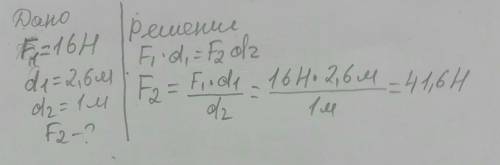 Дано
F₁=16Н
d₁=2,6м
d₂=1м
F₂-?
Решение
F₁·d₁=F₂d₂
F₂=F₁·d₁/d₂=16Н·2,6м/1м=41,6Н